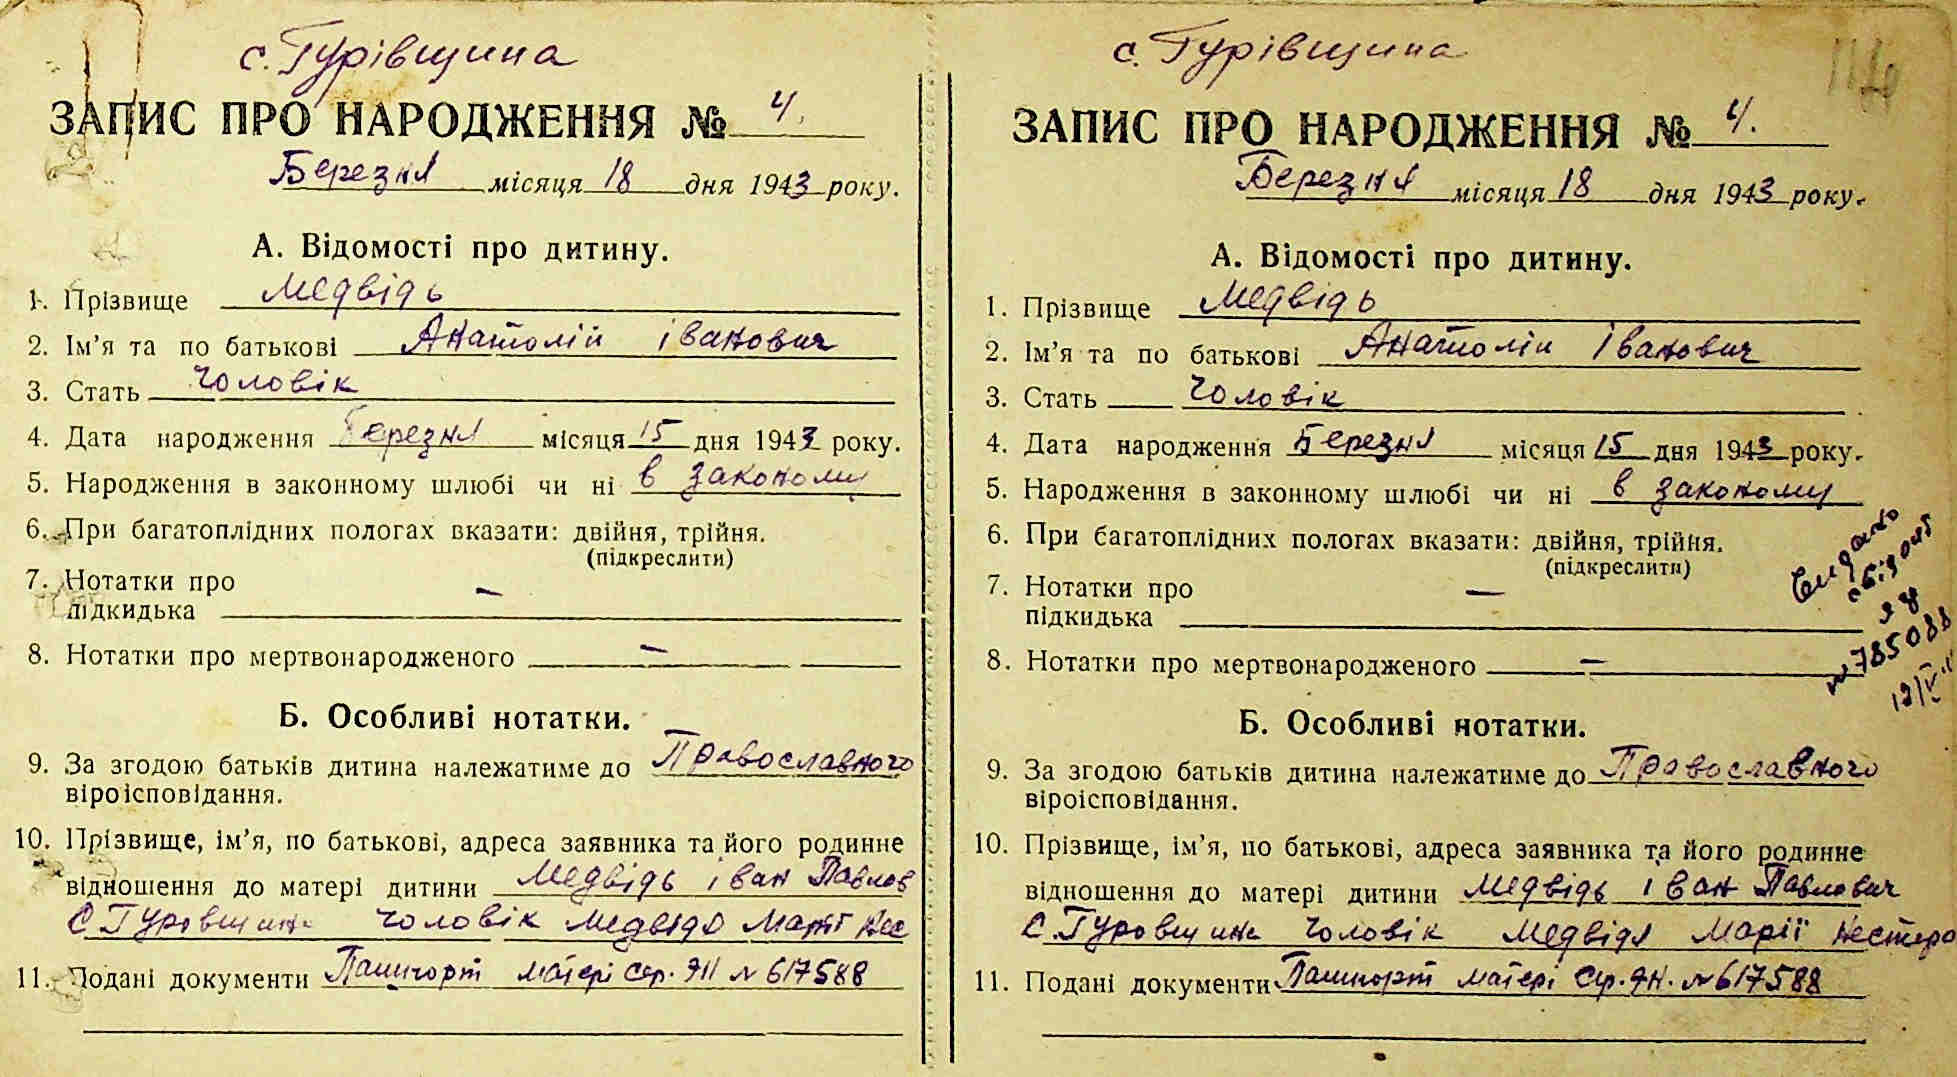 с. Гурівщина
ЗАПИС ПРО НАРОДЖЕННЯ № 4.
Березня місяця 18 дня 1943 року.
А. Відомості про дитину.
1. Прізвище Медвідь
2. Ім’я та по батькові Анатолій Іванович
3. Стать Чоловік
4. Дата народження Березня місяця 15 дня 1943 року.
5. Народження в законному шлюбі чи ні в законому
6. При багатоплідних пологах вказати: двійня, трійня.
(підкреслити)
7. Нотатки про
підкидька —
8. Нотатки про мертвонародженого —
Б. Особливі нотатки.
9. За згодою батьків дитина належатиме до Православного
віроісповідання.
10. Прізвище, ім’я, по батькові, адреса заявника та його родинне
відношення до матері дитини Медвідь Іван Павлов
с Гуровщина чоловік Медвідь Марії Нес
11. Подані документи Пашпорт матері сер. ЯН № 617588
с. Гурівщина
ЗАПИС ПРО НАРОДЖЕННЯ № 4.
Березня місяця 18 дня 1943 року.
А. Відомості про дитину.
1. Прізвище Медвідь
2. Ім’я та по батькові Анатолій Іванович
3. Стать Чоловік
4. Дата народження Березня місяця 15 дня 1943 року.
5. Народження в законному шлюбі чи ні в законому
6. При багатоплідних пологах вказати: двійня, трійня.
(підкреслити)
7. Нотатки про
підкидька —
8. Нотатки про мертвонародженого —
Б. Особливі нотатки.
9. За згодою батьків дитина належатиме до Православного
віроісповідання.
10. Прізвище, ім’я, по батькові, адреса заявника та його родинне
відношення до матері дитини Медвідь Іван Павлович
с Гуровщина Чоловік Медвідя Марії Нестеро
11. Подані документи Пашпорт матері Сер. ЯН. № 617588
№ 785088